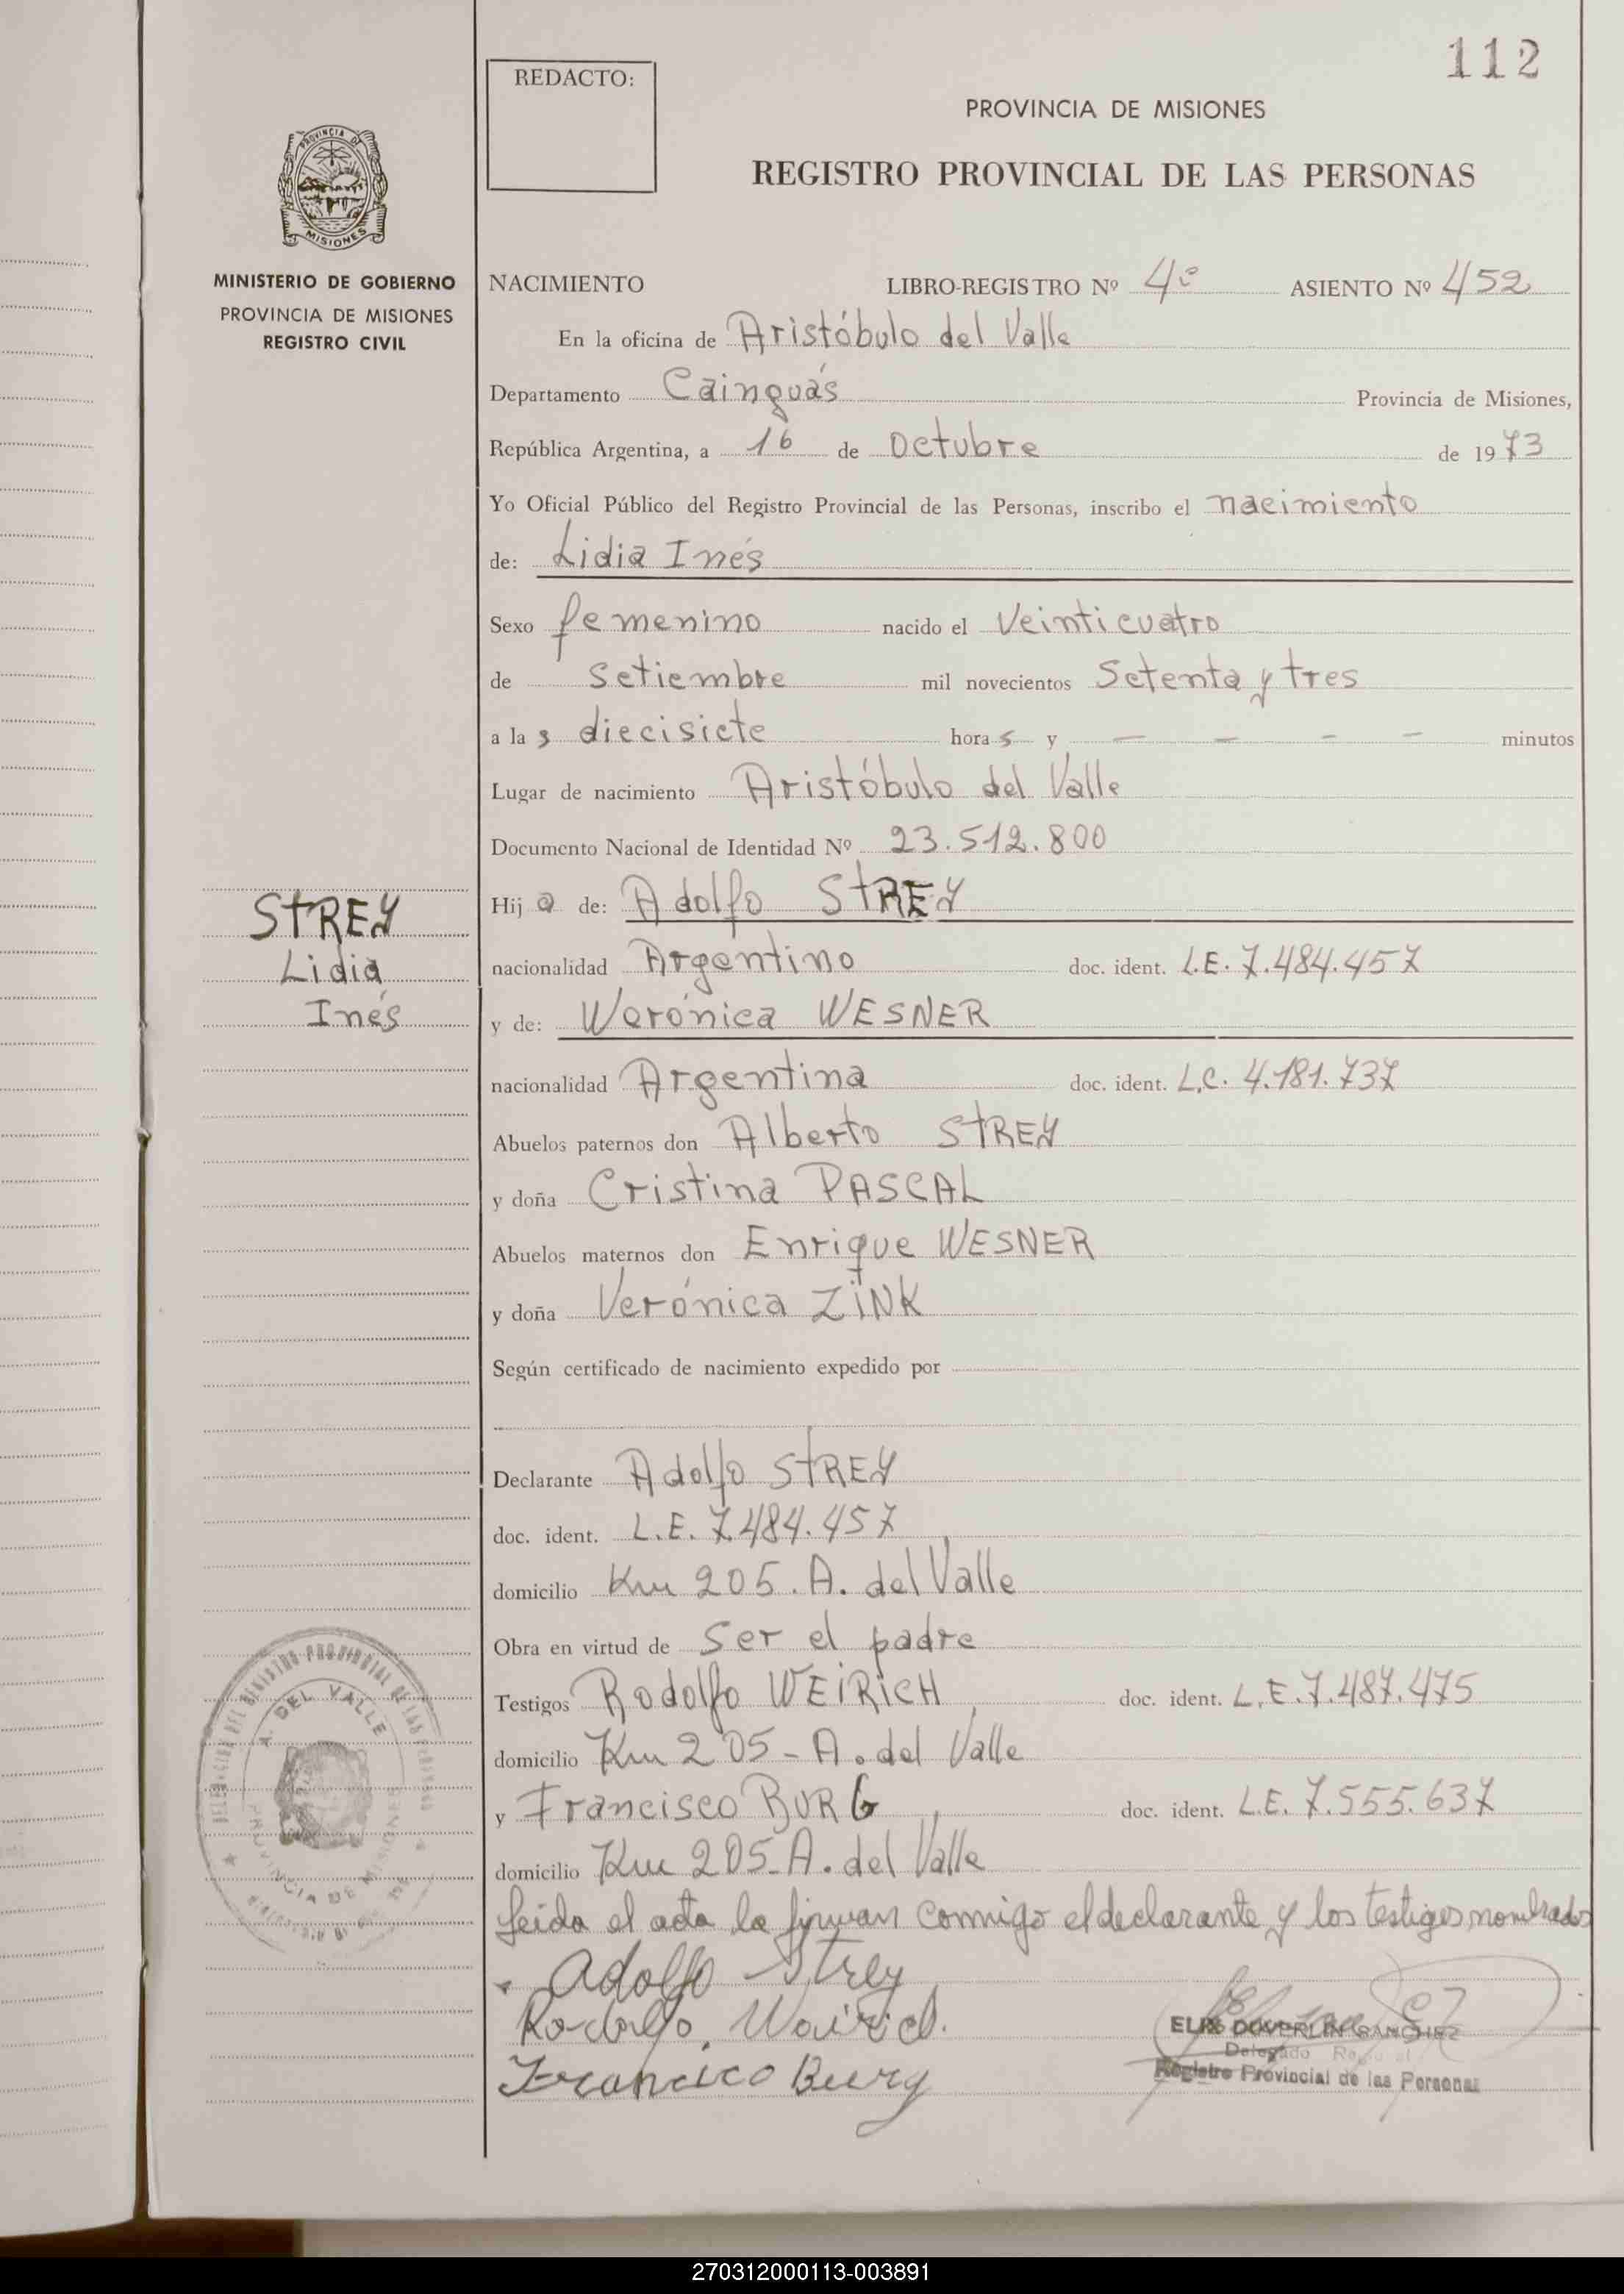 112
REDACTO:
PROVINCIA DE MISIONES
REGISTRO PROVINCIAL DE LAS PERSONAS
PROVINCIA DE
MISIONES
MINISTERIO DE GOBIERNO
PROVINCIA DE MISIONES
REGISTRO CIVIL
NACIMIENTO LIBRO-REGISTRO Nº 4º ASIENTO Nº 452
En la oficina de Aristóbulo del Valle
Departamento Cainguás Provincia de Misiones,
República Argentina, a 16 de Octubre de 1973
Yo Oficial Público del Registro Provincial de las Personas, inscribo el nacimiento
de: Lidia Inés
Sexo femenino nacido el Veinticuatro
de Setiembre mil novecientos Setenta y tres
a las diecisiete horas y — — — — minutos
Lugar de nacimiento Aristóbulo del Valle
Documento Nacional de Identidad Nº 23.512.800
Hija de: Adolfo STREY
nacionalidad Argentino doc. ident. L.E. 7.484.457
y de: Werónica WESNER
nacionalidad Argentina doc. ident. L.C. 4.181.737
Abuelos paternos don Alberto STREY
y doña Cristina PASCAL
Abuelos maternos don Enrique WESNER
y doña Verónica ZINK
Según certificado de nacimiento expedido por
Declarante Adolfo STREY
doc. ident. L.E. 7.484.457
domicilio Km 205. A. del Valle
Obra en virtud de Ser el padre
Testigos Rodolfo WEIRICH doc. ident. L.E. 7.487.475
domicilio Km 205 - A. del Valle
y Francisco BURG doc. ident. L.E. 7.555.637
domicilio Km 205 - A. del Valle
Leida el acta la firman conmigo el declarante y los testigos nombrados
Adolfo Strey
Rodolfo
Francisco Burg
STREY
Lidia
Inés
DELEGACION DEL REGISTRO PROVINCIAL DE LAS PERSONAS
A. DEL VALLE
PROVINCIA DE MISIONES
ELIX DUVERLIN SANCHEZ
Delegado
Registro Provincial de las Personas
270312000113-003891